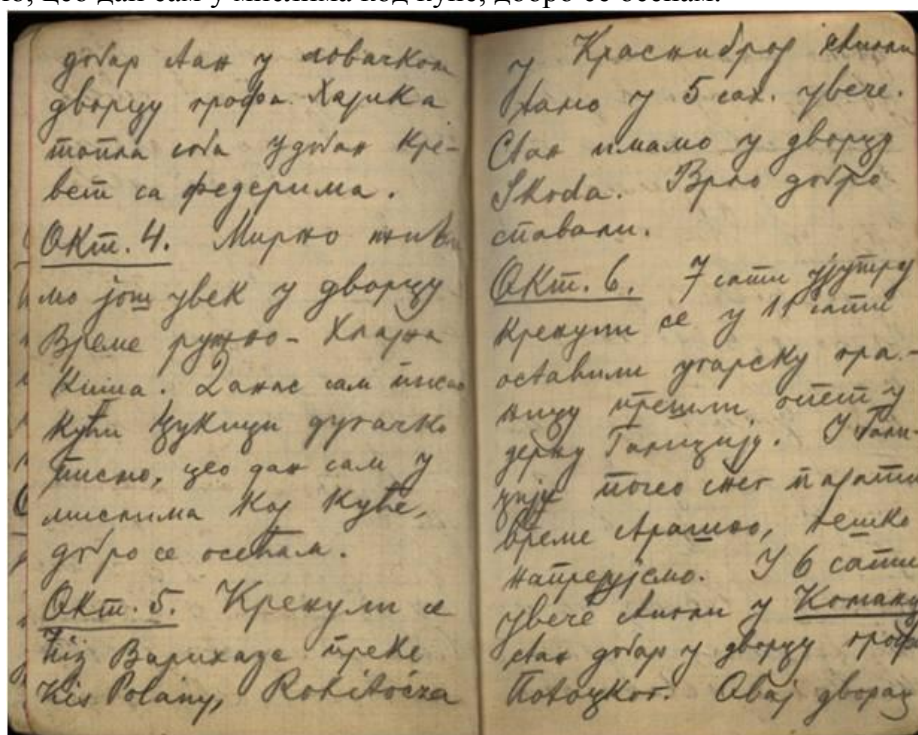 добар стан у ловачком
дворцу грофа Хајпка
топла соба удобан кре-
вет са федерима.
Окт. 4. Мирно живи
мо још увек у дворцу
Време ружно - хладна
киша. Данас сам писао
кући Цукици дугачко
писмо, цео дан сам у
мислима код куће,
добро се осећам.
Окт. 5. Кренули се
kiz Варихазе преке
Kis Polány, Rokitócza
у Красниброд стигли
тамо у 5 сах. увече.
Стан имамо у дворцу
Skoda. Врло добро
спавали.
Окт. 6. 7 сати ујутру
кренули се у 11 сати
оставили угарску гра-
ницу прешли опет у
церну Галицију. У Гали-
цији почео снег падати
време страшно, тешко
напредујемо. У 6 сати
увече стигли у Команч
стан добар у дворцу грофа
Потоцког. Овај дворац